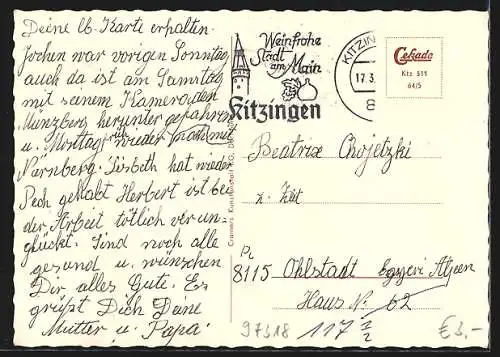 Deine lb. Karte erhalten.
Jochen war vorigen Sonntag
auch da ist am Samstag
mit seinem Kameraden
Münzberg herunter gefahren
u. Montag früh wieder mit
Nürnberg. Lisbeth hat wieder
Pech gehabt Herbert ist bei
der Arbeit tötlich verun-
glückt. Sind noch alle
gesund u. wünschen
Dir alles Gute. Es
grüßt Dich Deine
Mutter u. Papa.
Weinfrohe
Stadt
am Main
Kitzingen
KITZIN
17.3.
8
Cekade
Ktz 511
64/5
Cramers Kunstanstalt KG, Do
Beatrix Chojetzki
z. Zeit
PL
8115 Ohlstadt
Haus Nr. 62
97318 117
€3,-